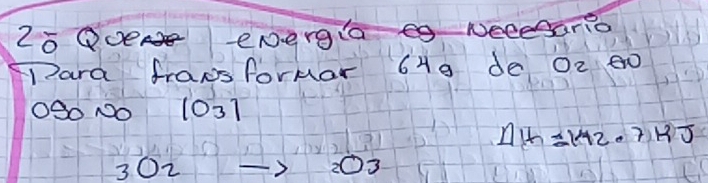 2º Que energía es necesario
Para transformar 64g de O2 en
OSONO [O3]
ΔH = 142.7 KJ
3O2 → 2O3